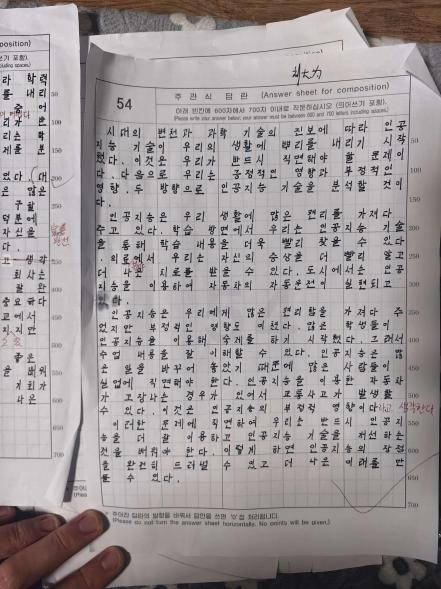 刘大为
54
주 관 식 답 란 (Answer sheet for composition)
아래 빈칸에 600자에서 700자 이내로 작문하십시오 (띄어쓰기 포함).
(Please write your answer below; your answer must be between 600 and 700 letters including spaces.)
시대의 변천과 과학 기술의 진보에 따라 인공
지능 기술이 우리의 생활에 뿌리를 내리기 시작
했다. 이것은 우리가 반드시 직면해야 할 문제이
다. 다음으로 우리는 긍정적인 영향과 부정적인
영향, 두 방향으로 인공지능 기술을 분석할 것이
다.
인공지능은 우리 생활에 많은 편리를 가져다
주고 있다. 학습 방면에서 우리는 인공지능 기술
을 통해 학습 내용을 더욱 빨리 찾을 수 있다
. 의료에서 우리는 자신의 증상을 더 빨리 알고
더 나은 치료를 받을 수 있다. 도시에서는 인공
지능을 이용하여 자동차의 자동운전이 실현되고
있다.
인공지능은 우리에게 많은 편리함을 가져다 주
었지만 부정적인 영향도 미쳤다. 많은 학생들이
인공지능을 이용해 숙제를 하기 시작했다. 그래서
수업 내용을 잘 이해할 수 없다. 인공지능은 많
은 일을 바꾸어 놓았기 때문에 많은 사람들이
실업에 직면해야 한다. 인공지능을 이용한 자동차
가 고장나는 경우가 있어서 교통사고가 발생할
수 있다. 이것은 인공지능의 부정적 영향이다라고 생각한다
이러한 문제에 직면하여 우리는 반드시 인공지
능을 더 잘 이용하고 인공지능 기술을 개선하는
것을 배워야 한다. 이렇게 하면 인공지능의 장점
을 완전히 드러낼 수 있고 더 나은 미래를 만
들 수 있다.
50
100
150
200
250
300
350
400
450
500
550
600
650
700
* 주어진 답란의 방향을 바꿔서 답안을 쓰면 '0'점 처리됩니다.
(Please do not turn the answer sheet horizontally. No points will be given.)